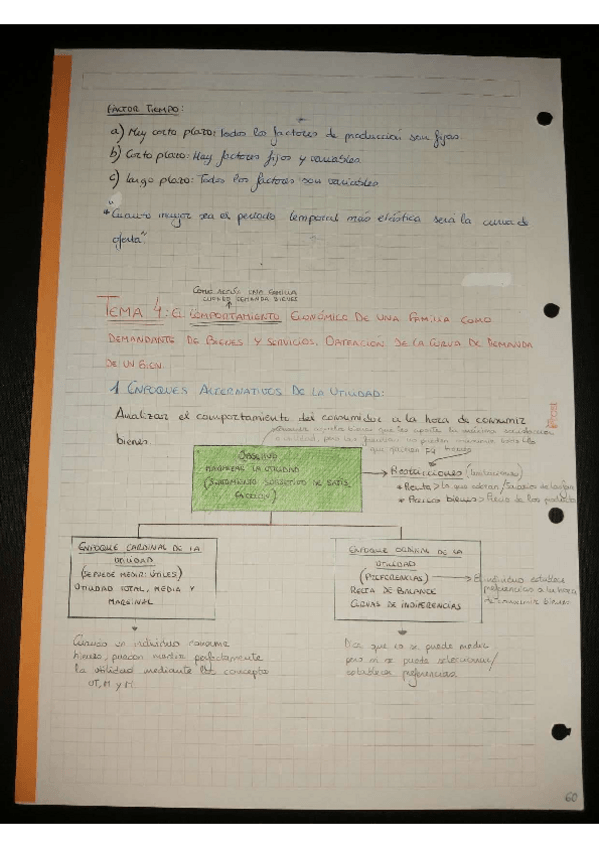 FACTOR TIEMPO:
a) Muy corto plazo: todos los factores de producción son fijos.
b) Corto plazo: Hay factores fijos y variables.
c) Largo plazo: Todos los factores son variables
* "Cuanto mayor sea el periodo temporal más elástica será la curva de
oferta".
COMO ACTÚA UNA FAMILIA
CUANDO DEMANDA BIENES
TEMA 4: EL COMPORTAMIENTO ECONÓMICO DE UNA FAMILIA COMO
DEMANDANTE DE BIENES Y SERVICIOS. OBTENCIÓN DE LA CURVA DE DEMANDA
DE UN BIEN.
1 ENFOQUES ALTERNATIVOS DE LA UTILIDAD:
Analizar el comportamiento del consumidor a la hora de consumir
bienes.
que quieran pq
OBJETIVO
MAXIMIZAR LA UTILIDAD
(SENTIMIENTO SUBJETIVO DE SATIS
FACCIÓN)
Restricciones (limitaciones)
* Renta >
* Precios bienes > Precio de los productos
ENFOQUE CARDINAL DE LA
UTILIDAD
(SE PUEDE MEDIR: ÚTILES)
UTILIDAD TOTAL, MEDIA Y
MARGINAL
ENFOQUE ORDINAL DE LA
UTILIDAD
(PREFERENCIAS)
RECTA DE BALANCE
CURVAS DE INDIFERENCIAS
El individuo establece
preferencias a la hora
de consumir bienes
Cuando un individuo consume
bienes, pueden medir perfectamente
la utilidad mediante los concepto
UT, M y M.
Dice que no se puede medir
pero si se puede seleccionar/
establecer preferencias
60